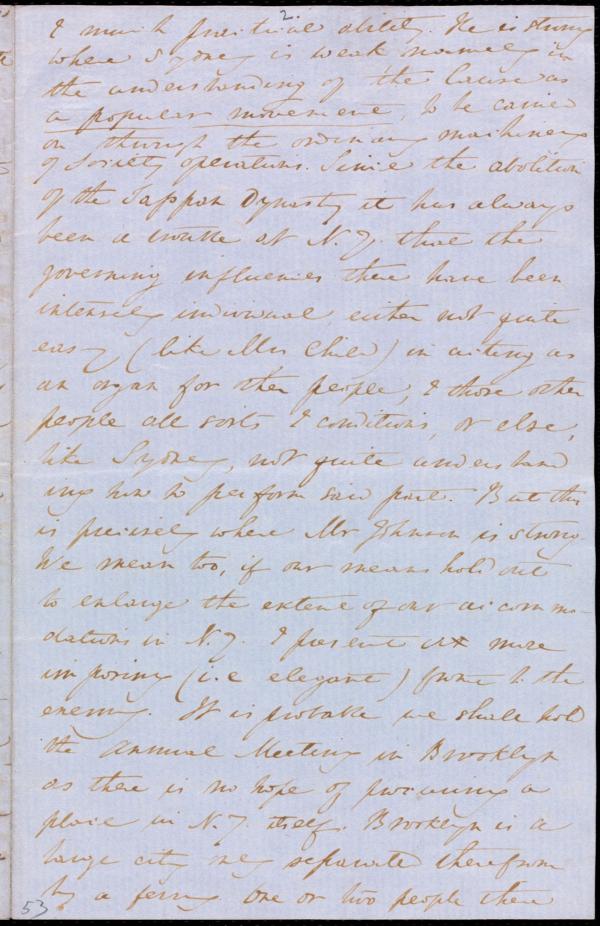 2.
& much practical ability. He is strong
where Sydney is weak namely in
the understanding of the Cause as
a popular movement, to be carried
on through the ordinary machinery
of Society operations. Since the abolition
of the Tappan Dynasty it has always
been a trouble at N.Y. that the
governing influences there have been
intensely individual either not quite
easy (like Mrs Child) in acting as
an organ for other people, & those other
people all sorts & conditions, or else,
like Sydney, not quite understand
ing how to perform said part. But this
is precisely where Mr Johnson is strong
We mean too, if our means hold out
to enlarge the extent of our accommo-
dations in N.Y. & present a more
imposing (i.e elegant) front to the
enemy. It is probable we shall hold
the Annual Meeting in Brooklyn
as there is no hope of procuring a
place in N.Y. itself. Brooklyn is a
large city only separated therefrom
by a ferry. One or two people there
53